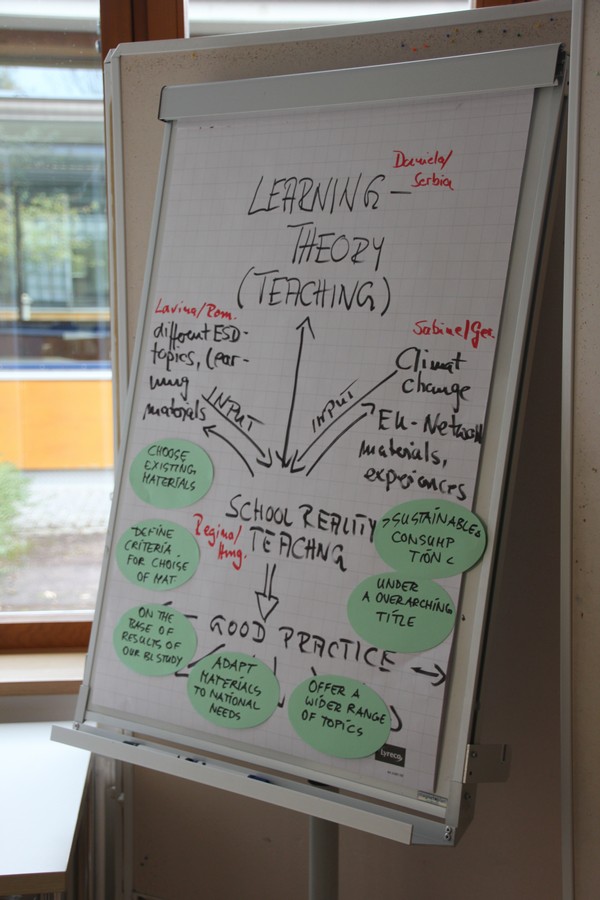 Daniela/
Serbia
LEARNING-
THEORY
(TEACHING)
Lavinia/Rom.
different ESD-
topics, lear-
ning
materials
INPUT
Sabine/Ger.
Climat
change
EU-Network
materials,
experiences
INPUT
CHOOSE
EXISTING
MATERIALS
SCHOOL REALITY
TEACHNG
Regina/
Hung.
>SUSTAINABLE
CONSUMP
TION <
DEFINE
CRITERIA
FOR CHOISE
OF MAT
UNDER
A OVERARCHING
TITLE
GOOD PRACTICE
ON THE
BASE OF
RESULTS OF
OUR BL STUDY
ADAPT
MATERIALS
TO NATIONAL
NEEDS
OFFER A
WIDER RANGE
OF TOPICS
Lyreco